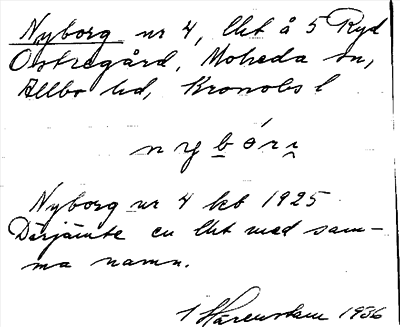 Nyborg nr 4, lht å 5 Ryd
Östregård, Moheda sn,
Allbo hd, Kronobs l
nybóri
Nyborg nr 4 keb 1925
Därjämte en lht med sam-
ma namn.
1936